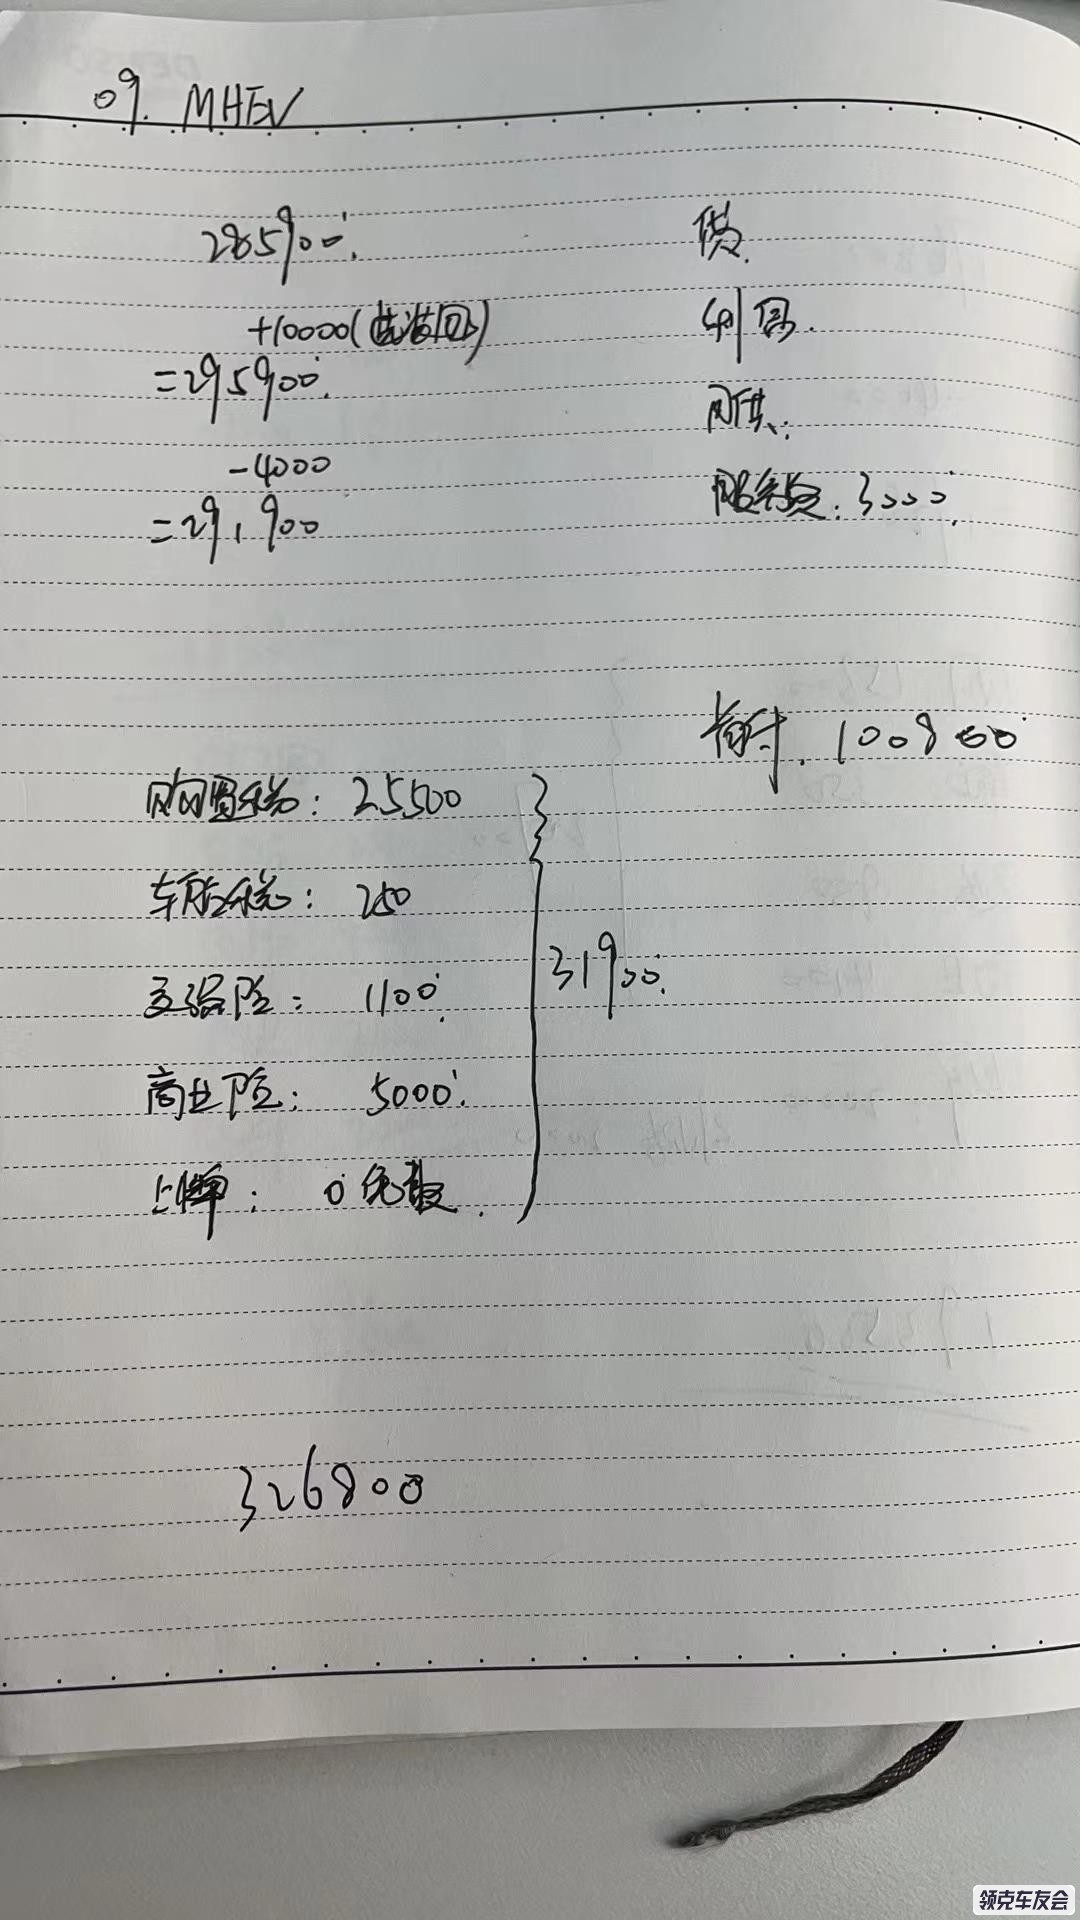 09. MHEV
285900.
+10000(选装包)
=295900.
-4000
=291900
贷.
利息.
月供:
服务费: 3000.
首付. 100800
购置税: 25500
车船税: 250
交强险: 1100.
商业险: 5000.
上牌: 0 免费.
31900.
326800
领克车友会